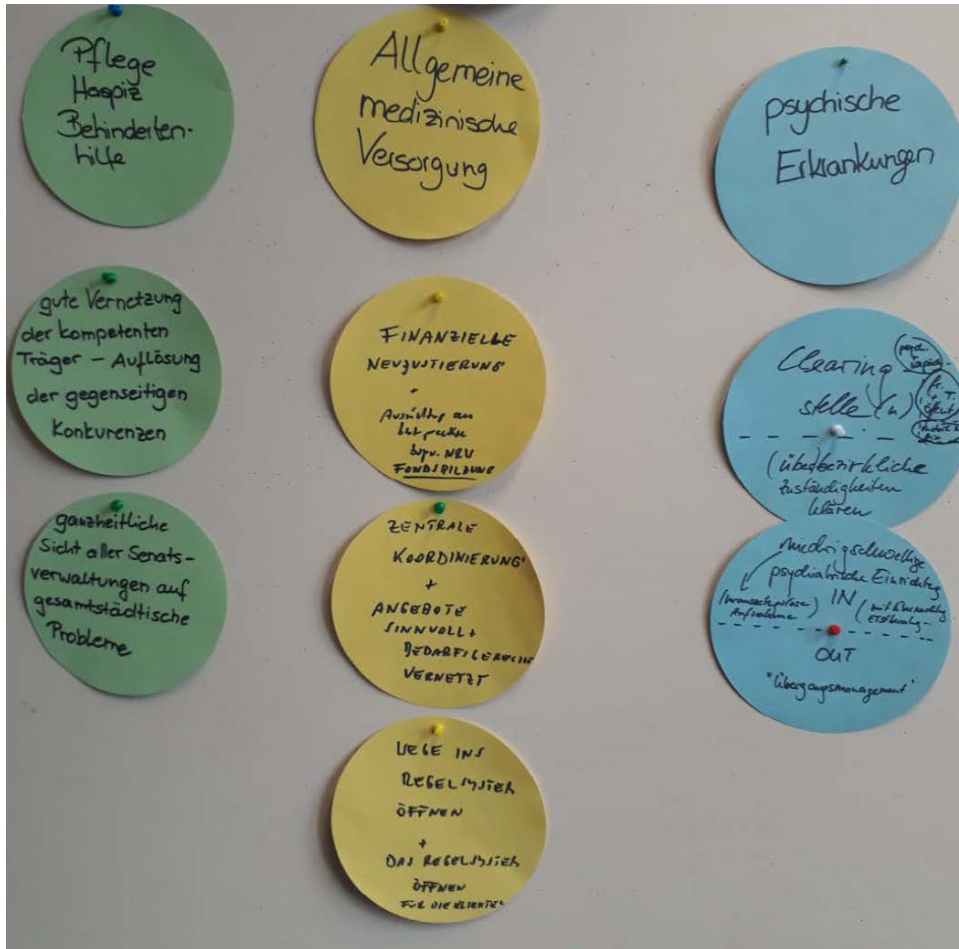 Pflege
Hospiz
Behinderten-
hilfe
gute Vernetzung
der kompetenten
Träger – Auflösung
der gegenseitigen
Konkurenzen
ganzheitliche
Sicht aller Senats-
verwaltungen auf
gesamtstädtische
Probleme
Allgemeine
medizinische
Versorgung
FINANZIELLE
NEUJUSTIERUNG
+
bzw. NEU
FONDSBILDUNG
ZENTRALE
KOORDINIERUNG
+
ANGEBOTE
SINNVOLL +
BEDARFSGERECHT
VERNETZT
WEGE INS
REGELSYSTEM
ÖFFNEN
+
DAS REGELSYSTEM
ÖFFNEN
FÜR DIE KLIENTEL
psychische
Erkrankungen
Clearing
stelle (n)
(überbezirkliche
Zuständigkeiten
klären
niedrigschwellige
psychiatrische Einrichtung
IN
OUT
"Übergangsmanagement"